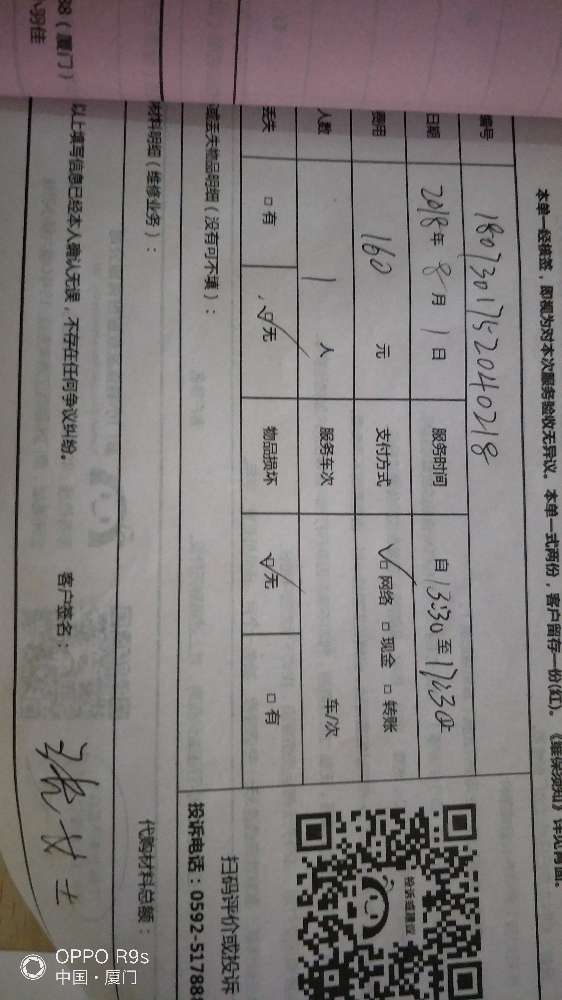 本单一经核签，即视为对本次服务验收无异议。本单一式两份，客户留存一份(红)。《维保须知》详见背面。
编号 1807301752040218
日期 2018年 8月 1日 服务时间 自 13:30 至 17:30止
费用 160 元 支付方式 ☑ 网络 □ 现金 □ 转账
人数 1 人 服务车次 车/次
丢失 □ 有 ☑ 无 物品损坏 ☑ 无 □ 有
丢失物品明细（没有可不填）：
扫码评价或投诉
投诉电话：0592-517888
材料明细（维修业务）：
代购材料总额：
以上填写信息已经本人确认无误，不存在任何争议纠纷。
客户签名： 张女士
88（厦门）
投诉或建议
OPPO R9s
中国·厦门